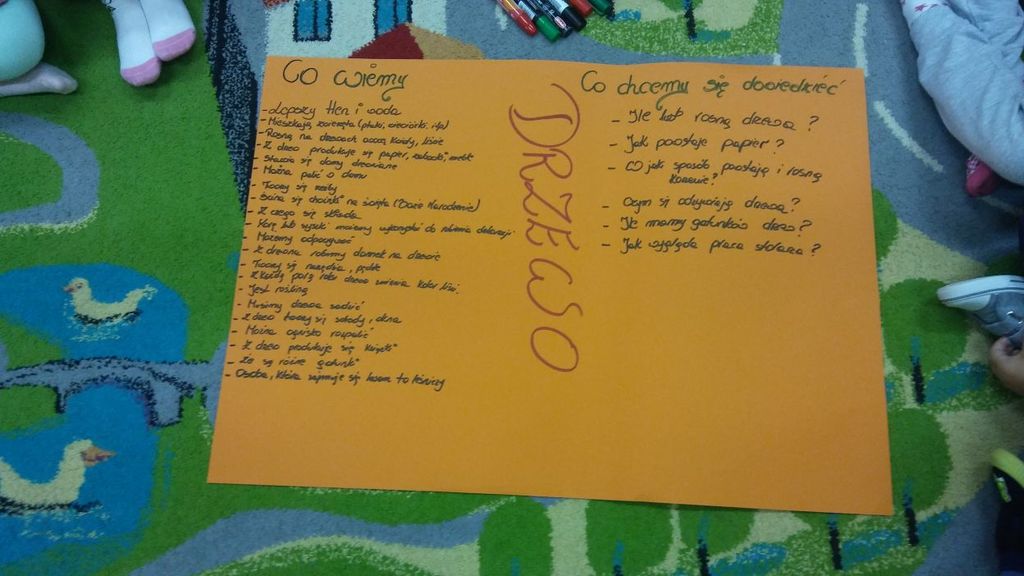 Co wiemy
- Lepszy tlen i woda
- Mieszkają zwierzęta (ptaki, wiewiórki, itp)
- Rosną na drzewach owoce, kwiaty, liście
- Z drzewa produkuje się papier, zabawki, meble
- Stawia się domy drewniane
- Można palić w domu
- Tworzy się meble
- Ścina się choinki na święta (Boże Narodzenie)
- Z czego się składa
- Korę lub szyszki możemy wykorzystać do robienia dekoracji
- Możemy odpoczywać
- Z drewna robimy domek na drzewie
- Tworzy się narzędzia, płotki
- Z każdą porą roku drzewo zmienia kolor liści
- Jest rośliną
- Musimy drzewa sadzić
- Z drzewa tworzy się schody, okna
- Można ognisko rozpalić
- Z drzewa produkuje się książki
- Że są różne gatunki
- Osoba, która zajmuje się lasem to leśniczy
DRZEWO
Co chcemy się dowiedzieć
- Ile lat rosną drzewa ?
- Jak powstaje papier ?
- W jaki sposób powstają i rosną
korzenie ?
- Czym się odżywiają drzewa ?
- Ile mamy gatunków drzew ?
- Jak wygląda praca stolarza ?